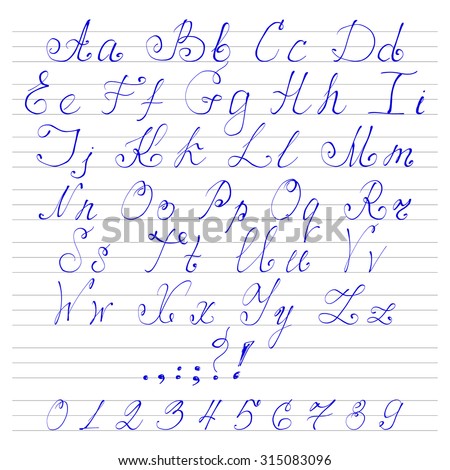 Aa Bb Cc Dd
Ee Ff Gg Hh Ii
Jj Kk Ll Mm
Nn Oo Pp Qq Rr
Ss Tt Uu Vv
Ww Xx Yy Zz
.,:;?!
0 1 2 3 4 5 6 7 8 9
shutterstock
IMAGE ID: 315083096
www.shutterstock.com